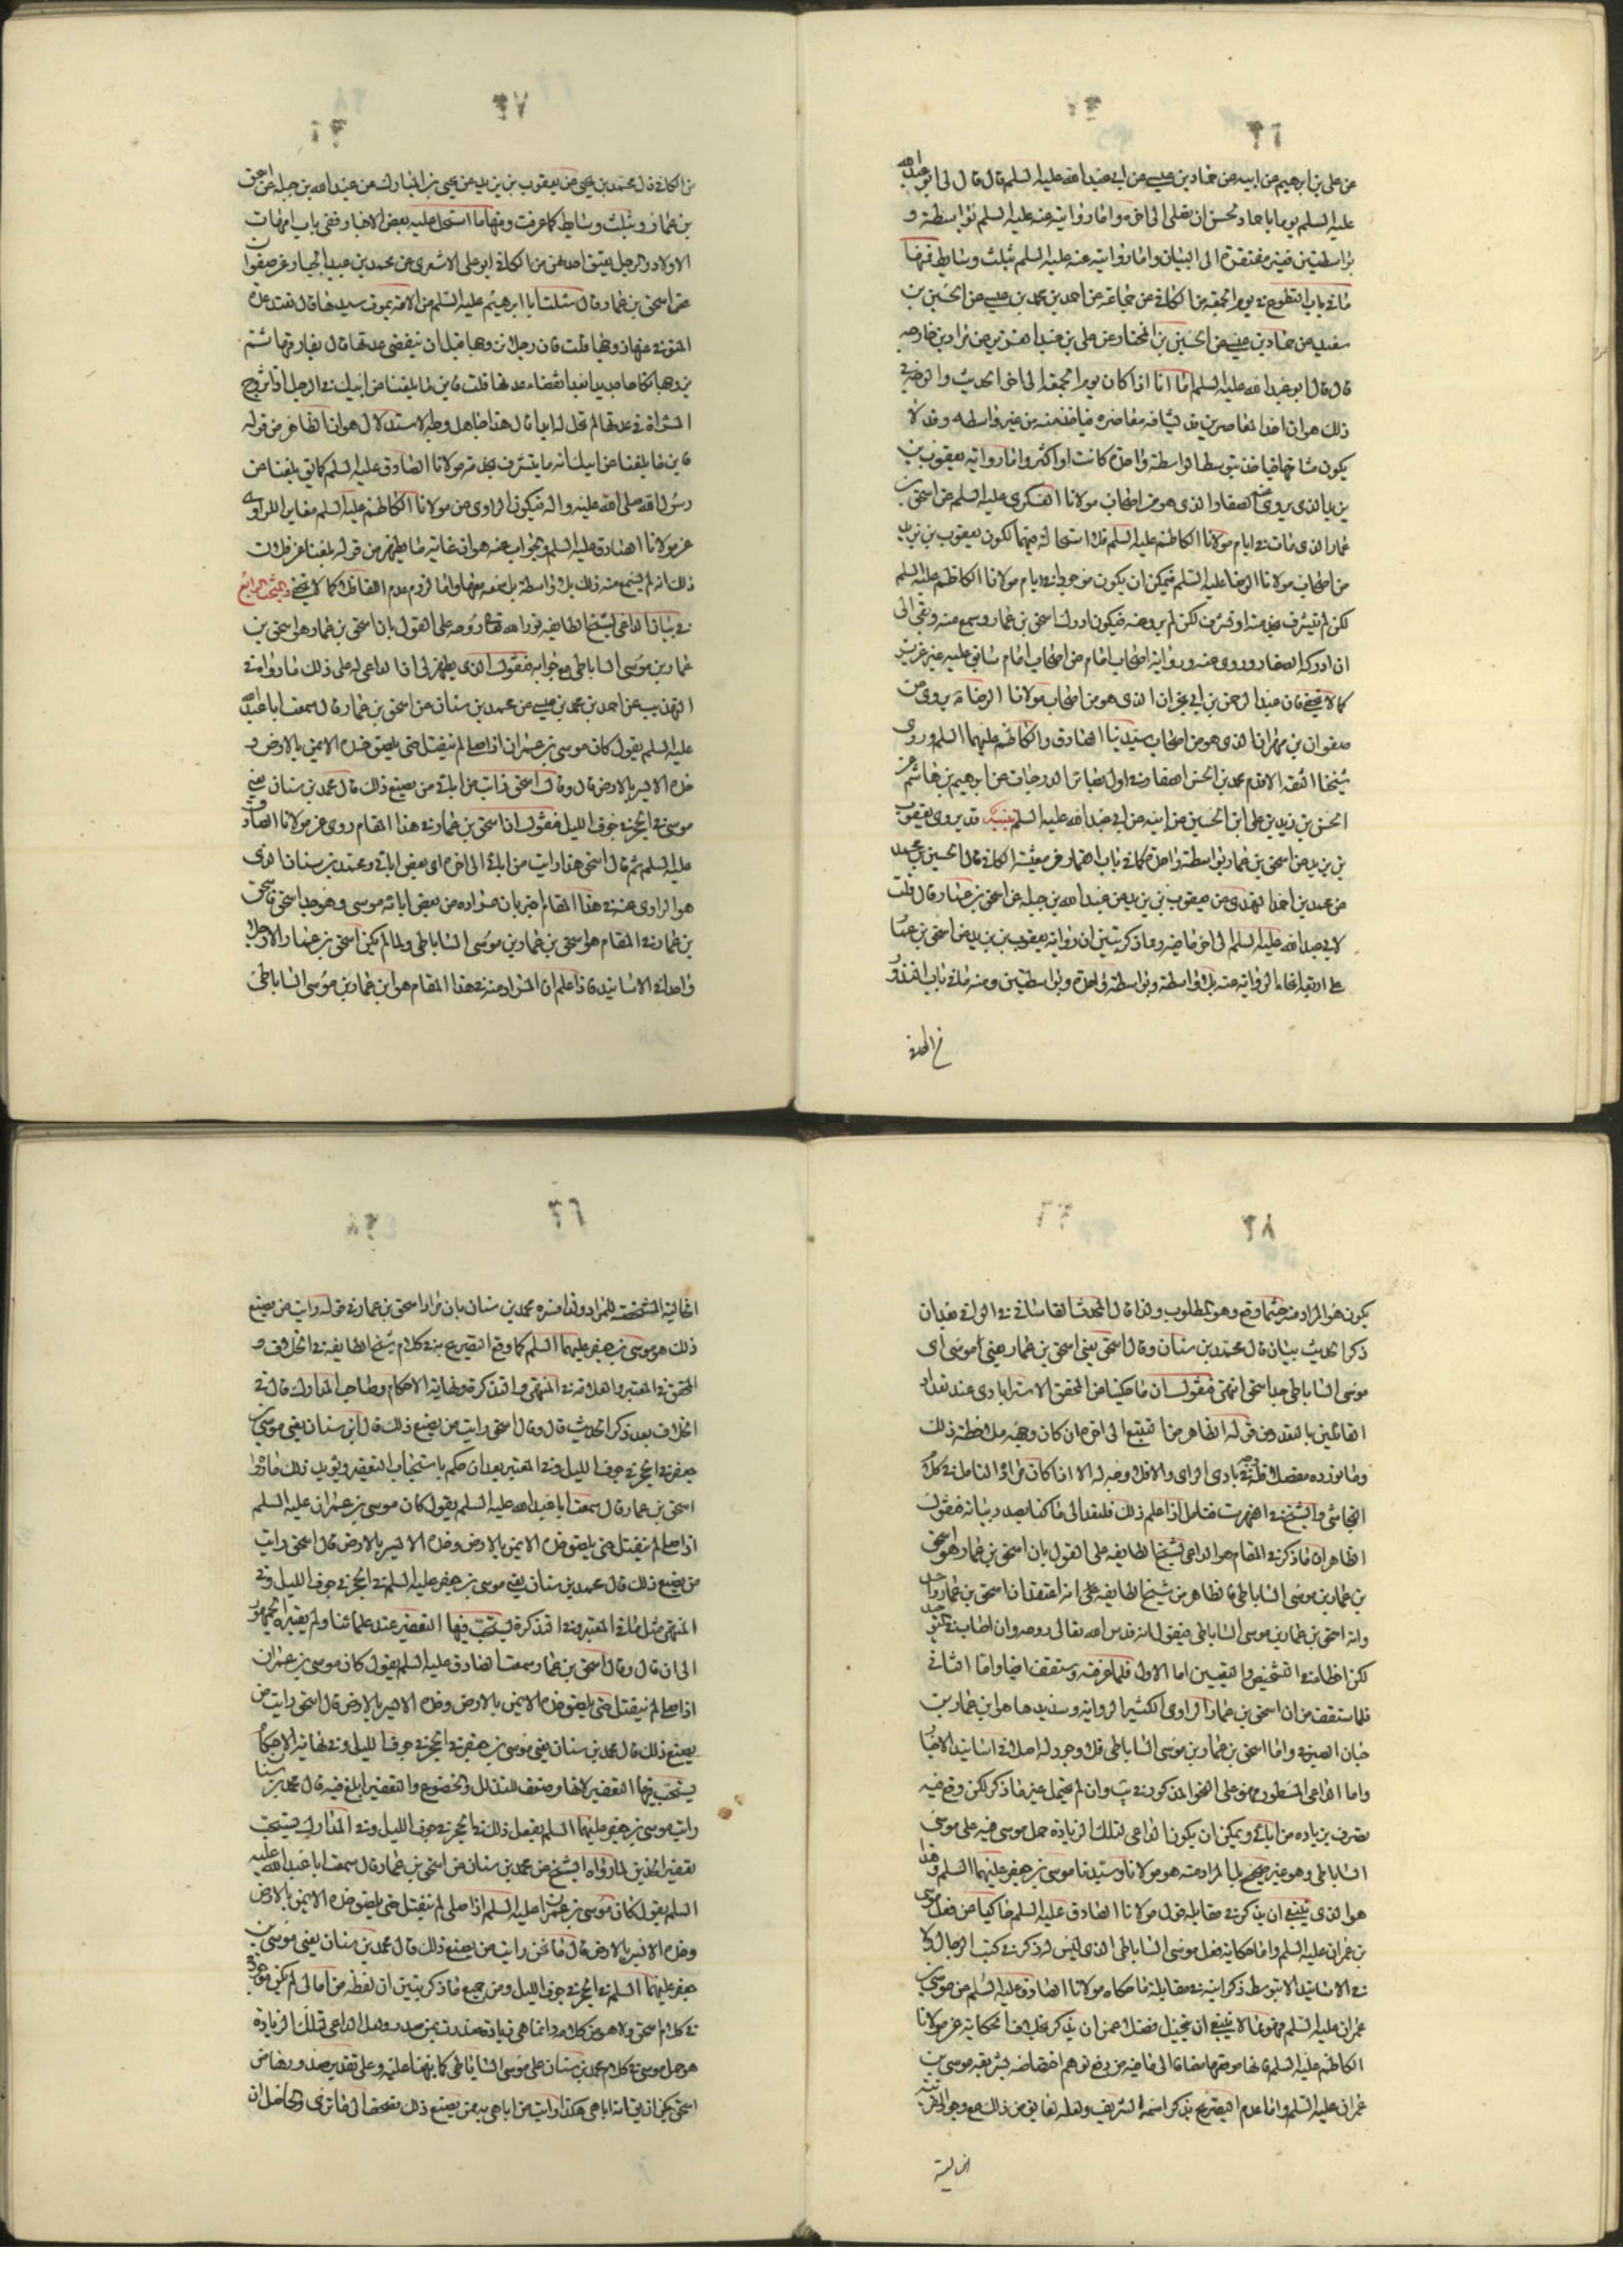 ٦٦
عن علی بن ابرهیم عن ابیه عن حماد بن عیسی عن ابی عبدالله علیه السلم قال قال لی ابو عبدالله
علیه السلم یوما یا حماد تحسن ان تصلی الی اخره واما روایته عنه علیه السلم بواسطة و
بواسطتین فغیر مفتقرة الی البیان واما روایته عنه علیه السلم بثلث وسایط فمنها
ما فی باب التطوع فی یوم الجمعة من الکافی عن جماعة عن احمد بن محمد بن عیسی عن الحسین بن
سعید عن حماد بن عیسی عن الحسین بن المختار عن علی بن عبدالعزیز عن مراد بن خارجه
قال قال ابو عبدالله علیه السلم اما انا اذا کان یوم الجمعة الی اخر الحدیث والوجه فی
ذلک هو ان احد المعاصرین قد یشافه معاصره فیاخذ منه من غیر واسطه وقد لا
یکون مشافها فیاخذ بتوسط الواسطة واحدة کانت او اکثر واما روایة یعقوب بن
یزید الذی یروی عنه الصفار الذی هو من اصحاب مولانا العسکری علیه السلم عن اسحق بن
عمار الذی مات فی ایام مولانا الکاظم علیه السلم فلا استحالة فیهما لکون یعقوب بن یزید
من اصحاب مولانا الرضا علیه السلم فیمکن ان یکون موجودا فی ایام مولانا الکاظم علیه السلم
لکن لم یتشرف بخدمته او تشرف لکن لم یرو عنه فیکون ادرک اسحق بن عمار وسمع منه وبقی الی
ان ادرکه الصفار وروی عنه وروایة اصحاب امام عن اصحاب امام سابق علیه غیر عزیز
کما لا یخفی فان عبدالرحمن بن ابی نجران الذی هو من اصحاب مولانا الرضا ع یروی عن
صفوان بن مهران الذی هو من اصحاب سیدینا الصادق والکاظم علیهما السلم وروی
شیخنا الثقة الاقدم محمد بن الحسن الصفار فی اول بصائر الدرجات عن ابرهیم بن هاشم عن
الحسن بن زید بن علی ابن الحسین عن ابیه عن ابی عبدالله علیه السلم تنبیه قد یروی یعقوب
بن یزید عن اسحق بن عمار بواسطة واحدة کما فی باب من معیشة الکافی قال الحسین بن محمد
عن محمد بن احمد النهدی عن یعقوب بن یزید عن عبدالله بن جبله عن اسحق بن عمار قال قلت
لابی عبدالله علیه السلم الی اخر ما فیه ومما ذکر تبین ان روایة یعقوب بن یزید عن اسحق بن عمار
علی اربعة انحاء الروایة عنه بلا واسطة وبواسطة واحدة وبواسطتین ومنه ما فی باب النذور
٦٧
من الکافی قال محمد بن یحیی عن یعقوب بن یزید عن یحیی بن المبارک عن عبدالله بن جبله عن اسحق
بن عمار وبثلث وسایط کما عرفت ومنها ما اشتمل علیه بعض الاخبار ففی باب امهات
الاولاد والرجل یعتق احدهن من الکافی ابو علی الاشعری عن محمد بن عبدالجبار عن صفوان
عن اسحق بن عمار قال سئلت ابا ابرهیم علیه السلم عن الامة یموت سیدها قال تعتد عدة
المتوفی عنها زوجها قلت فان رجلا تزوجها قبل ان تنقضی عدتها قال یفارقها ثم
یتزوجها نکاحا جدیدا بعد انقضاء عدتها قلت فاین ما بلغنا عن ابیک فی الرجل اذا تزوج
المراة فی عدتها لم تحل له ابدا قال هذا جاهل وجه الاستدلال هو ان الظاهر من قوله
فاین ما بلغنا عن ابیک انه ما یتشرف بخدمة مولانا الصادق علیه السلم کما فی بلغنا عن
رسول الله صلی الله علیه واله فیکون الراوی عن مولانا الکاظم علیه السلم مغایرا للراوی
عن مولانا الصادق علیه السلم والجواب عنه هو ان غایة ما یظهر من قوله بلغنا عن ابیک
ذلک انه لم یسمع منه ذلک بلا واسطة بل سمعه معها واما لزوم عدم اللقاء فلا کما لا یخفی المبحث الرابع
فی بیان الداعی لشیخ الطایفه نور الله تعالی روحه علی القول بان اسحق بن عمار هو اسحق بن
عمار بن موسی الساباطی مع جوابه فنقول الذی یظهر لی ان الداعی له علی ذلک ما رواه فی
التهذیب عن احمد بن محمد بن عیسی عن محمد بن سنان عن اسحق بن عمار قال سمعت ابا عبدالله
علیه السلم یقول کان موسی بن عمران اذا صلی لم ینفتل حتی یلصق خده الایمن بالارض و
خده الایسر بالارض قال وقال اسحق رایت من ابائی من یصنع ذلک قال محمد بن سنان یعنی
موسی فی الحجر فی جوف اللیل فنقول ان اسحق بن عمار فی هذا المقام روی عن مولانا الصادق
علیه السلم ثم قال اسحق هذا رایت من ابائی الی اخره ای بعض ابائی ومحمد بن سنان الذی
هو الراوی عنه فی هذا المقام اخبر بان مراده من بعض ابائه موسی وهو جد اسحق فاسحق
بن عمار فی المقام هو اسحق بن عمار بن موسی الساباطی ولما لم یکن اسحق بن عمار الا رجلا
واحدا فی الاسانید فاذا علم ان المراد منه فی هذا المقام هو ابن عمار بن موسی الساباطی
٦٨
یکون هو المراد منه حیثما وقع وهو المطلوب ولذا قال المحدث القاسانی فی الوافی بعد ان
ذکر الحدیث بیان قال محمد بن سنان وقال اسحق یعنی اسحق بن عمار یعنی موسی ای
موسی الساباطی جد اسحق انتهی فنقول ان ما حکینا عن المحقق الاسترابادی عند تعداد
القائلین بالتعدد من قوله الظاهر من التتبع الی اخره ان کان وجهه ملاحظة ذلک
وما نورده مفصلا فله وجه فی بادی الرای والا فلا وجه له الا اذا کان مراده التامل فی کلام
النجاشی والشیخ فی الفهرست فتامل اذا علم ذلک فلنعد الی ما کنا بصدد بیانه فنقول
الظاهر ان ما ذکر فی المقام هو الداعی لشیخ الطایفه علی القول بان اسحق بن عمار هو اسحق
بن عمار بن موسی الساباطی فالظاهر من شیخ الطایفه علی انه اعتقد ان اسحق بن عمار واحد
وانه اسحق بن عمار بن موسی الساباطی فنقول انه قدس الله تعالی روحه وان اصاب فی
لکن اخطا فی التشخیص والتعیین اما الاول فلما عرفته وستقف ایضا واما الثانی
فلما ستقف من ان اسحق بن عمار الراوی الکثیر الروایة وسدیدها هو ابن عمار بن
حیان الصیرفی واما اسحق بن عمار بن موسی الساباطی فلا وجود له اصلا فی اسانید الاخبار
واما الداعی المسطور فهو علی النحو المذکور فی یب وان لم یحتمل غیر ما ذکر لکن وقع فیه
تصرف بزیادة من ابائی ویمکن ان یکون الداعی لتلک الزیادة حمل موسی فیه علی موسی
الساباطی وهو غیر صحیح بل المراد منه هو مولانا وسیدنا موسی بن جعفر علیهما السلم وهذا
هو الذی ینبغی ان یذکر فی مقابلة قول مولانا الصادق علیه السلم حاکیا عن فعل موسی
بن عمران علیه السلم واما حکایة فعل موسی الساباطی الذی لیس له ذکر فی کتب الرجال ولا
فی الاسانید الا بتوسط ذکر ابنه فی مقابلة ما حکاه مولانا الصادق علیه السلم من موسی بن
عمران علیه السلم فهو مما لا ینبغی ان یتخیل فضلا عن ان یذکر بخلاف الحکایة عن مولانا
الکاظم علیه السلم فانها موقعها مضافا الی ما فیه من رفع توهم اختصاصه بشریعة موسی بن
عمران علیه السلم واما عدم التصریح بذکر اسمه الشریف ولعله لمانع من ذلک مع وجود القرینة
الحالیة
٦٩
الحالیة المشخصة للمراد ولذا فسره محمد بن سنان بان مراد اسحق بن عمار فی قوله رایت من یصنع
ذلک هو موسی بن جعفر علیهما السلم کما وقع التصریح به فی کلام شیخ الطایفه فی الخلاف و
المحقق فی المعتبر والعلامة فی المنتهی والتذکرة ونهایة الاحکام وصاحب المدارک قال فی
الخلاف بعد ذکر الحدیث قال وقال اسحق رایت من یصنع ذلک قال ابن سنان یعنی موسی بن
جعفر فی الحجر فی جوف اللیل وفی المعتبر بعد ان حکم باستحباب التعفیر ویؤید ذلک ما رواه
اسحق بن عمار قال سمعت ابا عبدالله علیه السلم یقول کان موسی بن عمران علیه السلم
اذا صلی لم ینفتل حتی یلصق خده الایمن بالارض وخده الایسر بالارض قال اسحق رایت
من یصنع ذلک قال محمد بن سنان یعنی موسی بن جعفر علیه السلم فی الحجر فی جوف اللیل وفی
المنتهی مثل ما فی المعتبر وفی التذکرة یستحب فیها التعفیر عند علمائنا ولم یعتبره الجمهور
الی ان قال وقال اسحق بن عمار سمعت الصادق علیه السلم یقول کان موسی بن عمران
اذا صلی لم ینفتل حتی یلصق خده الایمن بالارض وخده الایسر بالارض قال اسحق رایت من
یصنع ذلک قال محمد بن سنان یعنی موسی بن جعفر فی الحجر فی جوف اللیل وفی نهایة الاحکام
یستحب فیها التعفیر لانها وضعت للتذلل والخضوع والتعفیر ابلغ فیه قال محمد بن سنان
رایت موسی بن جعفر علیهما السلم یفعل ذلک فی الحجر فی جوف اللیل وفی المدارک یستحب
تعفیر الخدین لما رواه الشیخ عن محمد بن سنان عن اسحق بن عمار قال سمعت ابا عبدالله علیه
السلم یقول کان موسی بن عمران علیه السلم اذا صلی لم ینفتل حتی یلصق خده الایمن بالارض
وخده الایسر بالارض قال اسحق رایت من یصنع ذلک قال محمد بن سنان یعنی موسی بن
جعفر علیهما السلم فی الحجر فی جوف اللیل ومن جمیع ما ذکر یتبین ان لفظة من ابائی لم یکن موجودا
فی کلام اسحق ولا هو من کلامه وانما هی زیادة صدرت ممن صدر ولعل الداعی لتلک الزیادة
هو حمل موسی فی کلام محمد بن سنان علی موسی الساباطی کما نبهنا علیه وعلی تقدیر صدورها من
اسحق یمکن ان یقال انه ابا هی هکذا رایت من اباهی به من یصنع ذلک فصحف الی ما تری والحاصل ان